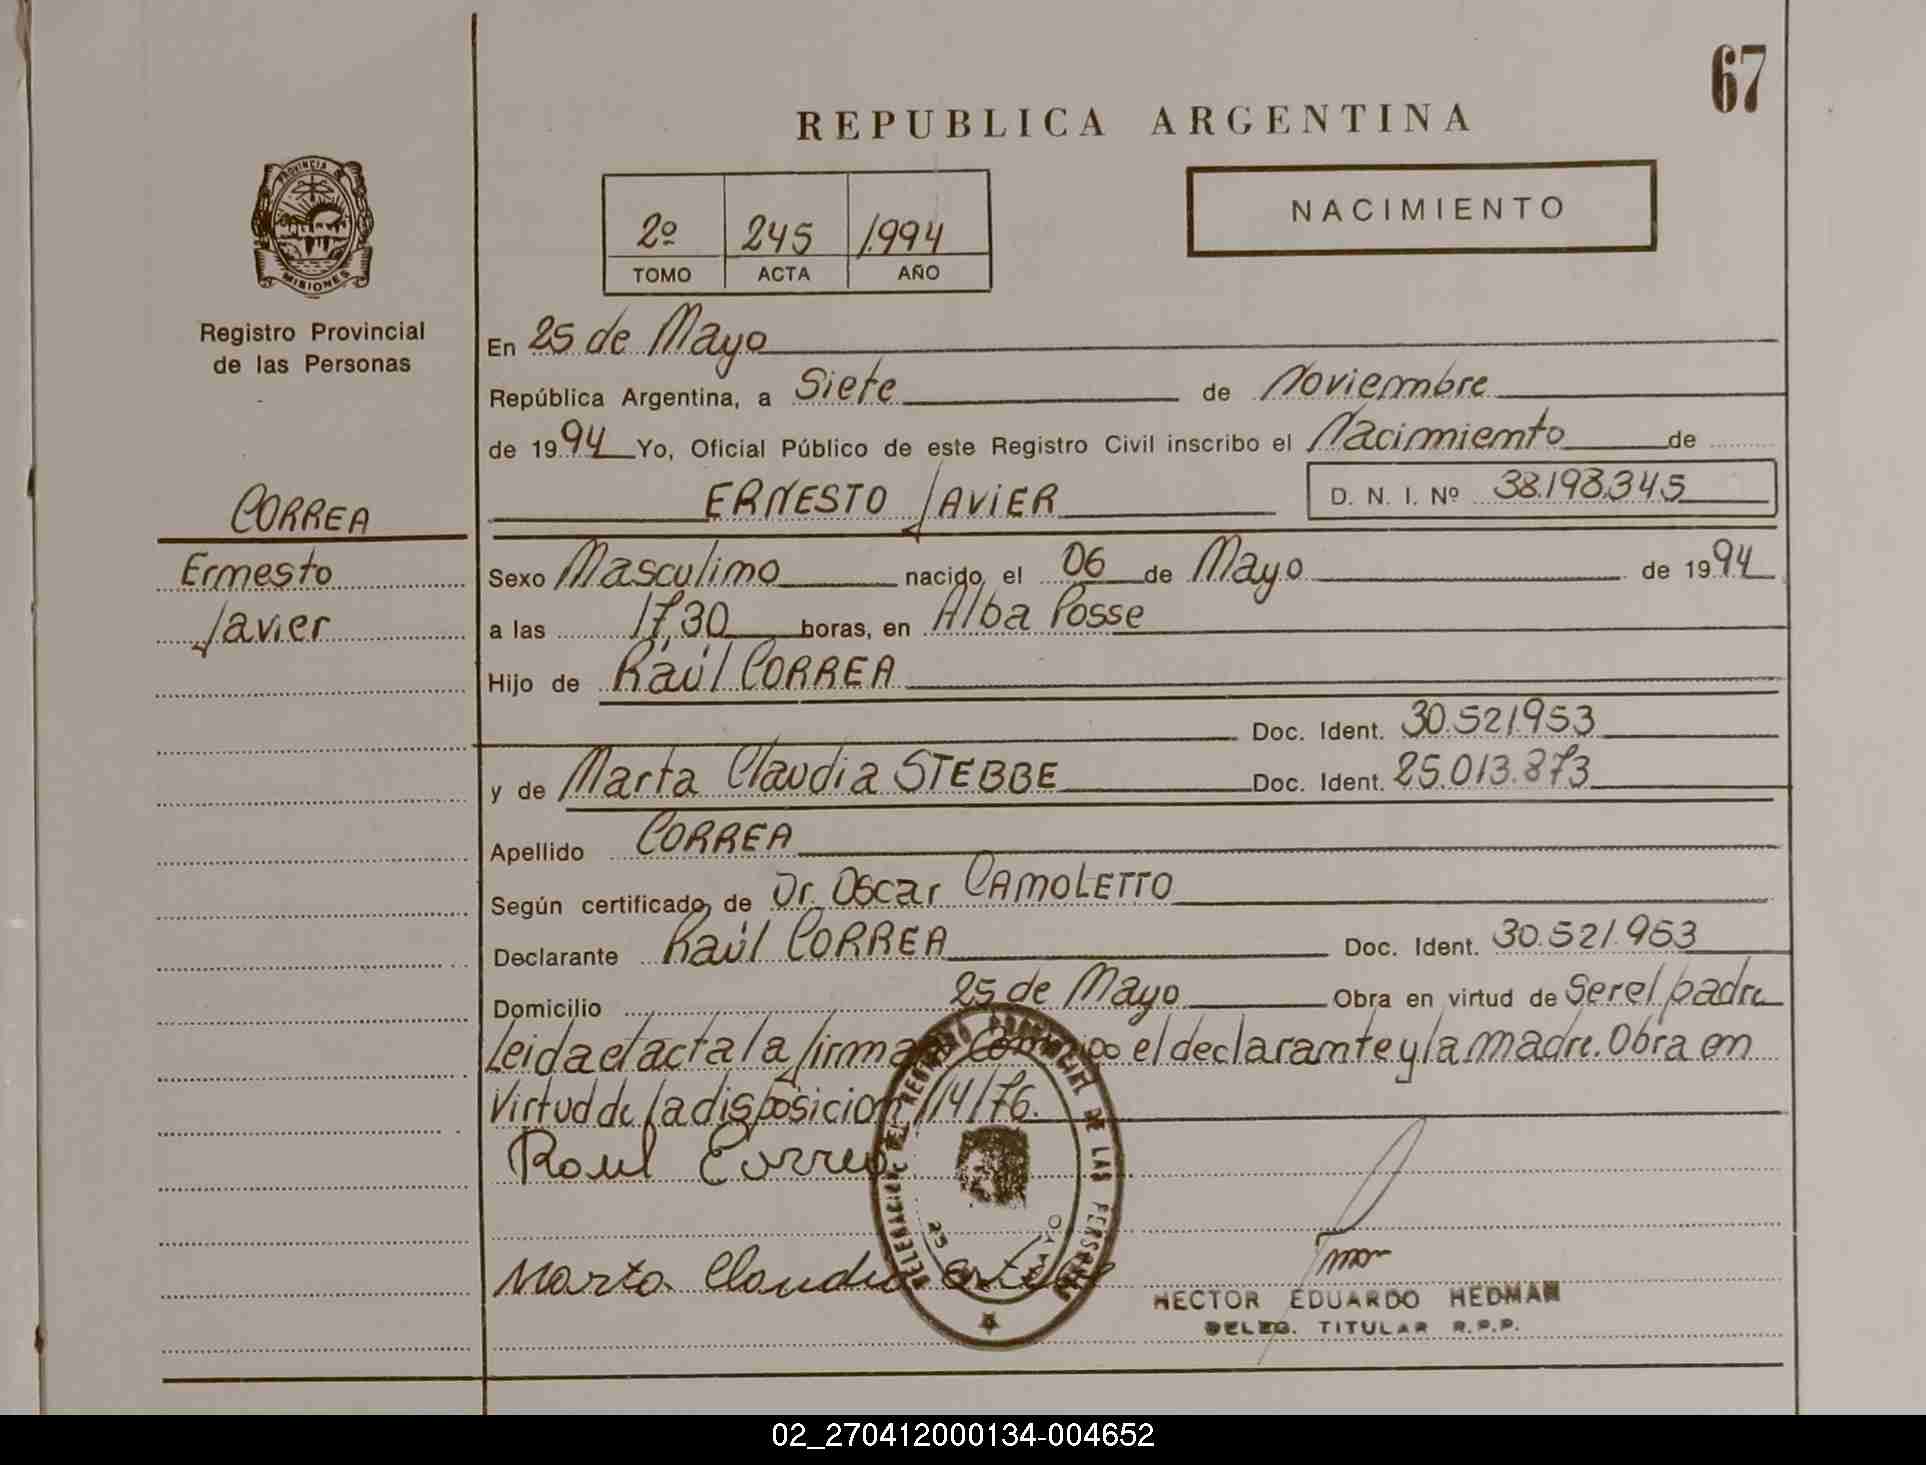 67
REPUBLICA ARGENTINA
PROVINCIA
MISIONES
Registro Provincial
de las Personas
2º 245 1994
TOMO ACTA AÑO
NACIMIENTO
En 25 de Mayo
República Argentina, a Siete de Noviembre
de 1994 Yo, Oficial Público de este Registro Civil inscribo el Nacimiento de
CORREA
Ernesto
Javier
ERNESTO JAVIER D. N. I. Nº 38.198.345
Sexo Masculino nacido el 06 de Mayo de 1994
a las 17,30 horas, en Alba Posse
Hijo de Raúl CORREA
Doc. Ident. 30.521.953
y de Marta Claudia STEBBE Doc. Ident. 25.013.873
Apellido CORREA
Según certificado de Dr. Oscar CAMOLETTO
Declarante Raúl CORREA Doc. Ident. 30.521.953
Domicilio 25 de Mayo Obra en virtud de Ser el padre
Leida el acta la firman conmigo el declarante y la madre. Obra en
Virtud de la disposicion 114/76.
Raul Correa
Marta Claudia
DELEGACION DEL REGISTRO PROVINCIAL DE LAS PERSONAS
HECTOR EDUARDO HEDMAN
DELEG. TITULAR R.P.P.
02_270412000134-004652